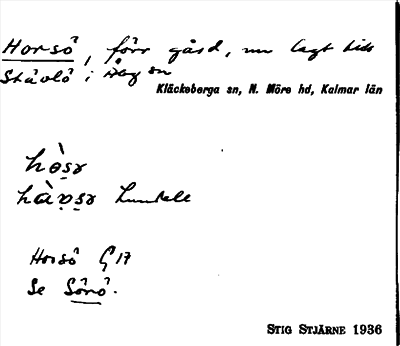 Horsö, förr gård, nu lagt till
Stävlö i Åby sn
Kläckeberga sn, N. Möre hd, Kalmar län
Lundahl
Horsö G 17
Se Sörö.
STIG STJÄRNE 1936